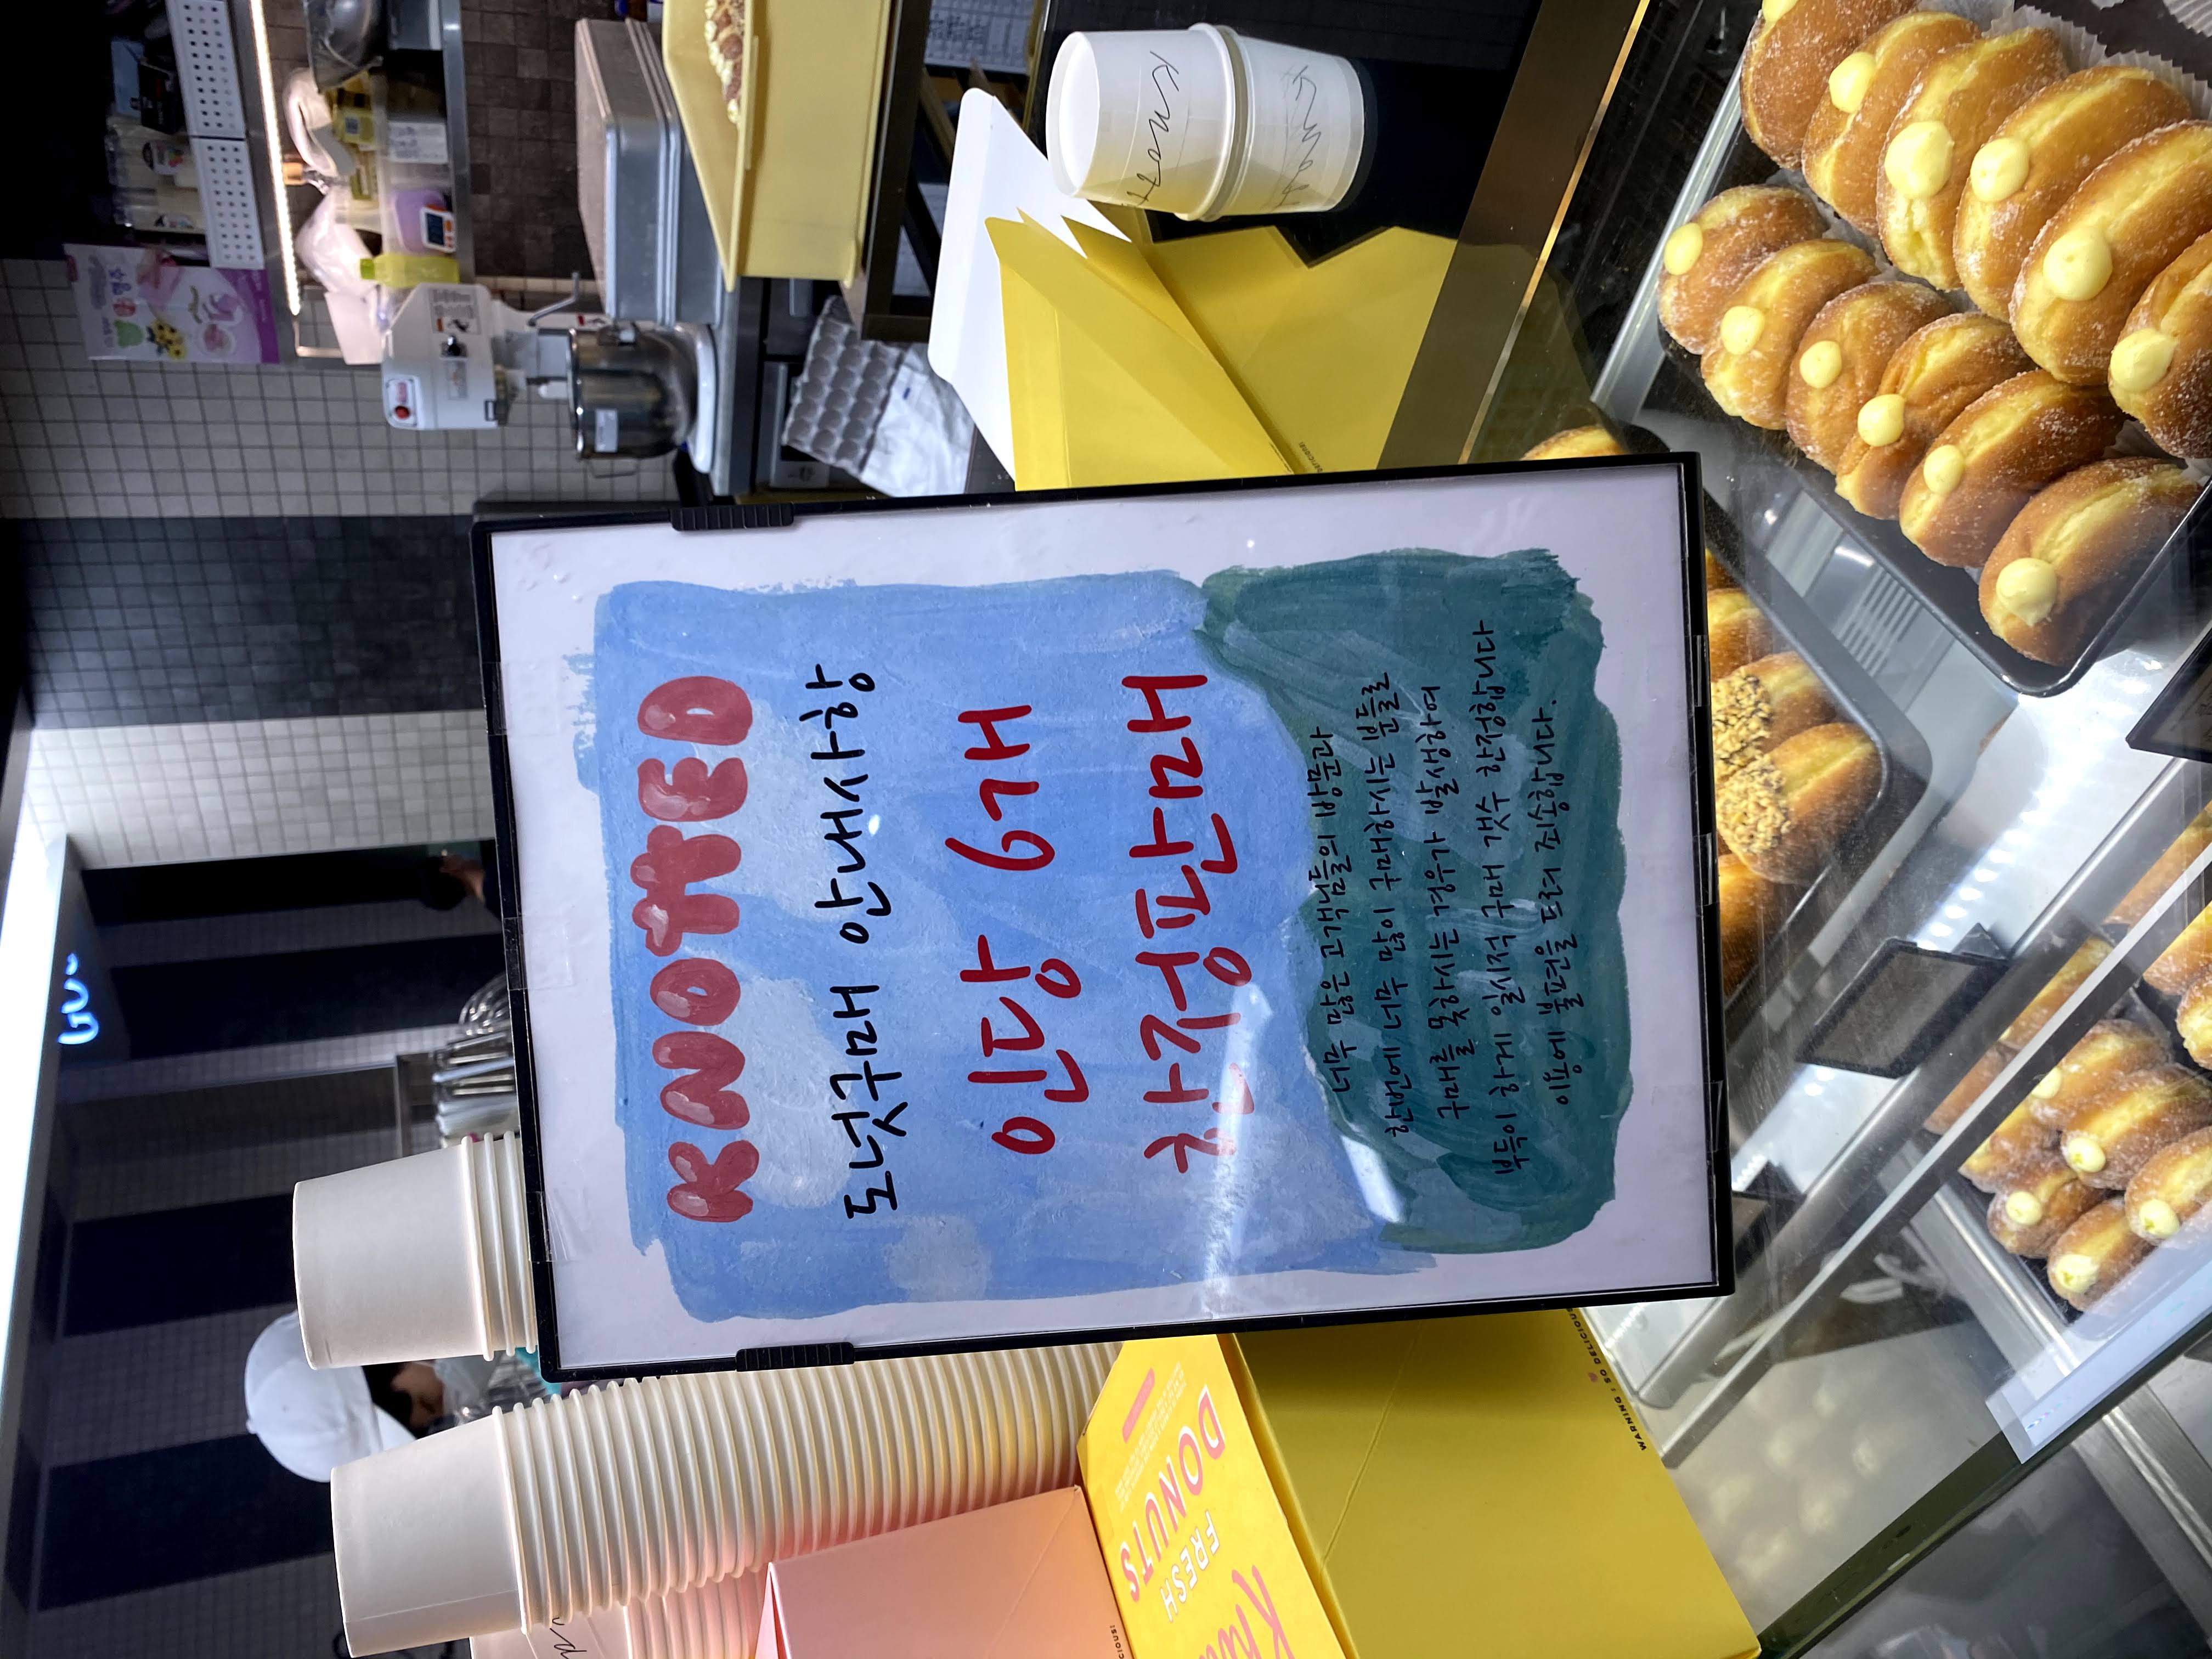 KNOTTED
도넛구매 안내사항
인당 6개
한정판매
너무 많은 고객님들의 방문과
한번에 너무 많이 구매하시는 분들로
구매를 못하시는 경우가 발생하여
부득이 하게 일시적 구매 갯수 한정합니다
이용에 불편을 드려 죄송합니다.
Knott
DONUTS
FRESH
WARNING! SO DELICIOUS